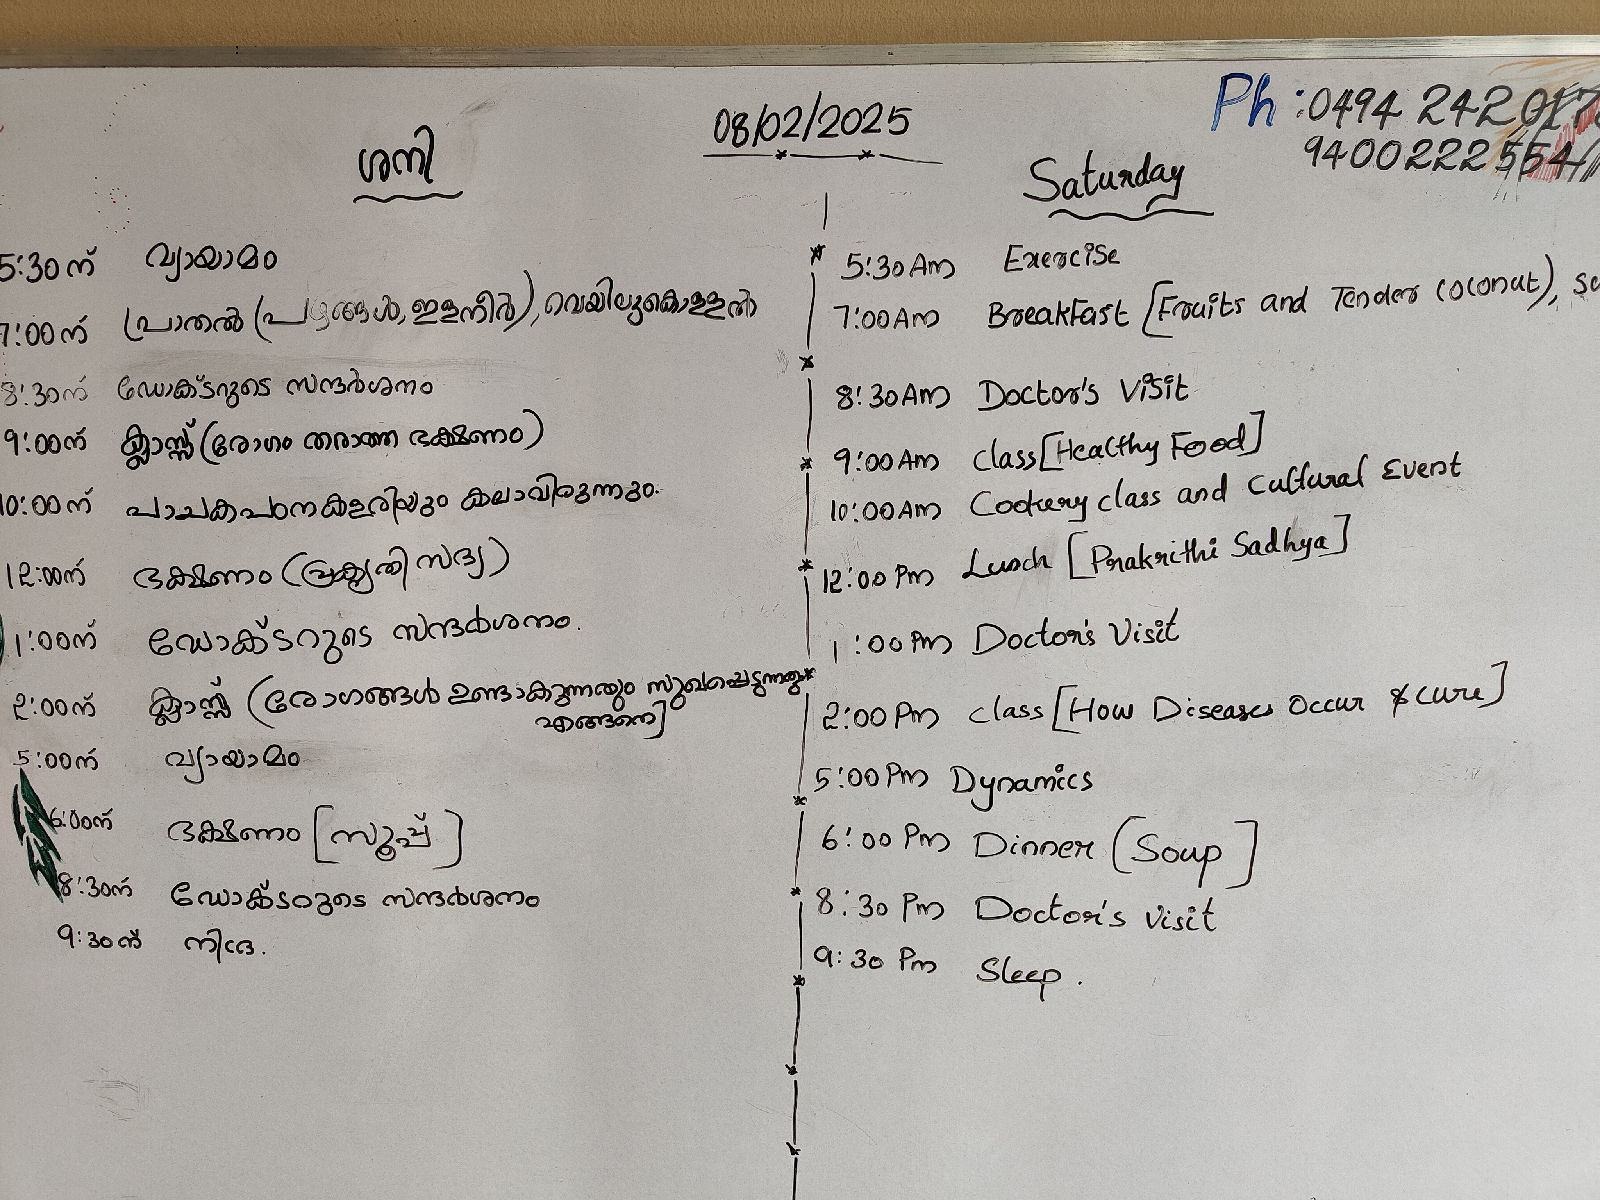 08/02/2025
Ph :0494 242 017
9400222554/
ശനി
5:30ന് വ്യായാമം
7:00ന് പ്രാതൽ (പഴങ്ങൾ, ഇളനീർ), വെയിലുകൊള്ളൽ
8:30ന് ഡോക്ടറുടെ സന്ദർശനം
9:00ന് ക്ലാസ്സ് (രോഗം തരാത്ത ഭക്ഷണം)
10:00ന് പാചകപഠനകളരിയും കലാവിരുന്നും.
12:00ന് ഭക്ഷണം (പ്രകൃതി സദ്യ)
1:00ന് ഡോക്ടറുടെ സന്ദർശനം.
2:00ന് ക്ലാസ്സ് (രോഗങ്ങൾ ഉണ്ടാകുന്നതും സുഖപ്പെടുന്നതും
എങ്ങനെ]
5:00ന് വ്യായാമം
6:00ന് ഭക്ഷണം [സൂപ്പ്]
8:30ന് ഡോക്ടറുടെ സന്ദർശനം
9:30ന് നിദ്ര.
Saturday
5:30 Am Exercise
7:00 Am Breakfast [Fruits and Tender coconut), su
8:30 Am Doctor's Visit
9:00 Am class [Healthy Food]
10:00 Am Cookery class and cultural Event
12:00 Pm Lunch [Prakrithi Sadhya]
1:00 Pm Doctor's Visit
2:00 Pm class [How Diseases Occur & cure]
5:00 Pm Dynamics
6:00 Pm Dinner (Soup]
8:30 Pm Doctor's visit
9:30 Pm Sleep.